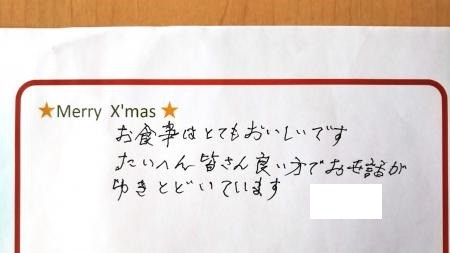 ★Merry X'mas★
お食事はとてもおいしいです
たいへん皆さん良い方でお世話が
ゆきとどいています